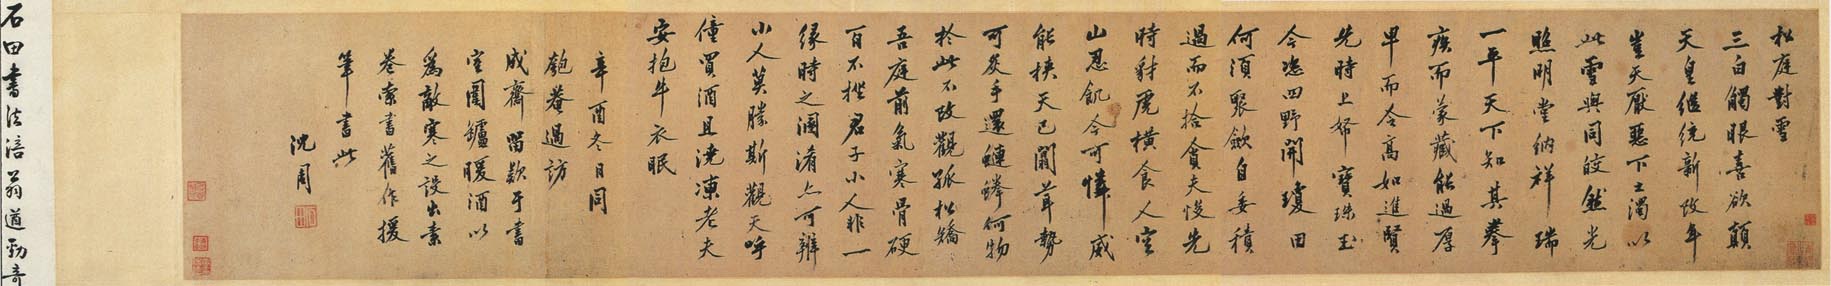 松庭對雪
三白觸眼喜欲顛
天皇繼統新改年
豈天厭惡下土濁以
此雪與同皎然光
照明堂納祥瑞
一平天下知其拳
疾而蒙藏能過厚
卑而令高如進賢
先時上帑寶珠玉
今恣田野開瓊田
何須聚歛自委積
過而不拾貪夫悛先
時豺虎橫食人空
山忍飢今可憐威
能挾天已闒茸勢
可炙手還鰱鱗何物
於此不改觀孤松矯
吾庭前氣寒骨硬
百不摧君子小人非一
緣時之溷淆亦可辨
小人莫勝斯觀天呼
僮買酒且澆凍老夫
安抱牛衣眠
辛酉冬日同
匏菴過訪
成齋留歘于書
室圍鑪暖酒以
為敵寒之設出素
卷索書舊作援
筆書此
沈周
石田書法涪翁遒勁奇